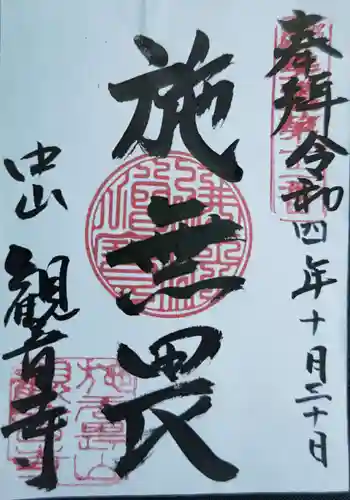 奉拝 令和四年十月二十日
施無畏
中山 観音寺